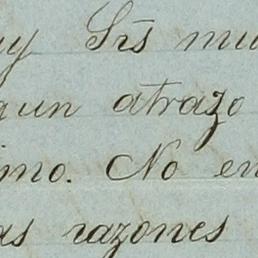 uy Srs mu
gun atrazo
imo. No en
as razones